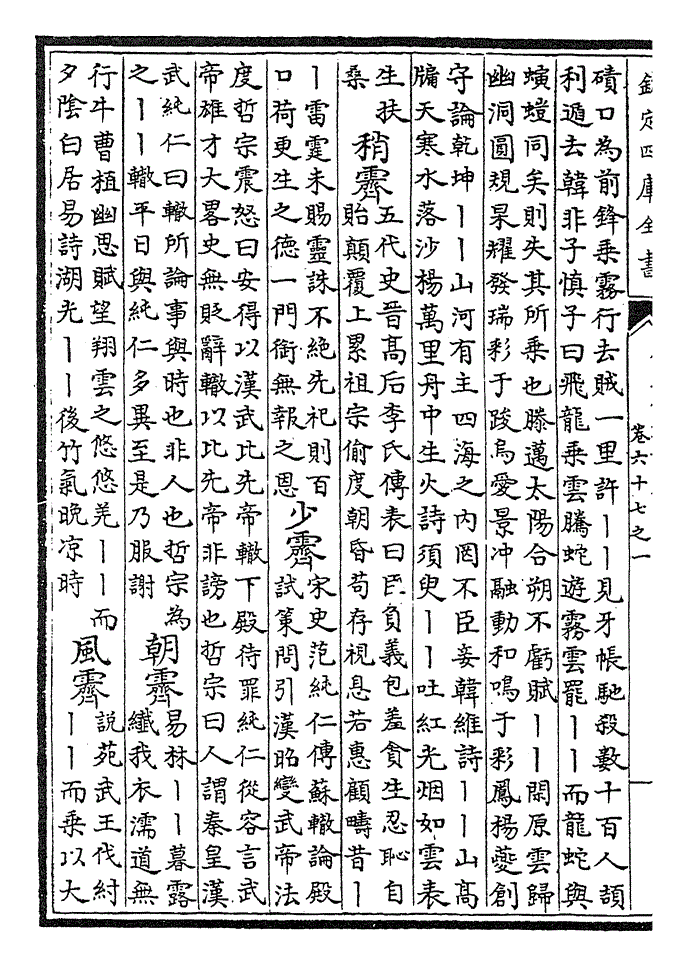 欽定四庫全書
卷六十七之一
磧口為前鋒乗霧行去賊一里許丨丨見牙帳馳殺數十百人頡
利遁去韓非子慎子曰飛龍乗雲騰蛇遊霧雲罷丨丨而龍蛇與
螾螘同矣則失其所乗也滕邁太陽合朔不虧賦丨丨閑原雲歸
幽洞圓規杲耀發瑞彩于踆烏愛景冲融動和鳴于彩鳳楊夔創
守論乾坤丨丨山河有主四海之内罔不臣妾韓維詩丨丨山髙
牖天寒水落沙楊萬里舟中生火詩須臾丨丨吐紅光烟如雲表
生扶
桑
稍霽
五代史晉髙后李氏傳表曰臣負義包羞貪生忍恥自
貽顛覆上累祖宗偷度朝昏苟存視息若惠顧疇昔丨
丨雷霆未賜靈誅不絶先祀則百
口荷更生之德一門銜無報之恩
少霽
宋史范純仁傳蘇轍論殿
試策問引漢昭變武帝法
度哲宗震怒曰安得以漢武比先帝轍下殿待罪純仁從容言武
帝雄才大畧史無貶辭轍以比先帝非謗也哲宗曰人謂秦皇漢
武純仁曰轍所論事與時也非人也哲宗為
之丨丨轍平日與純仁多異至是乃服謝
朝霽
易林丨丨暮露
纖我衣濡道無
行牛曹植幽思賦望翔雲之悠悠羌丨丨而
夕陰白居易詩湖光丨丨後竹氣晚凉時
風霽
說苑武王伐紂
丨丨而乗以大